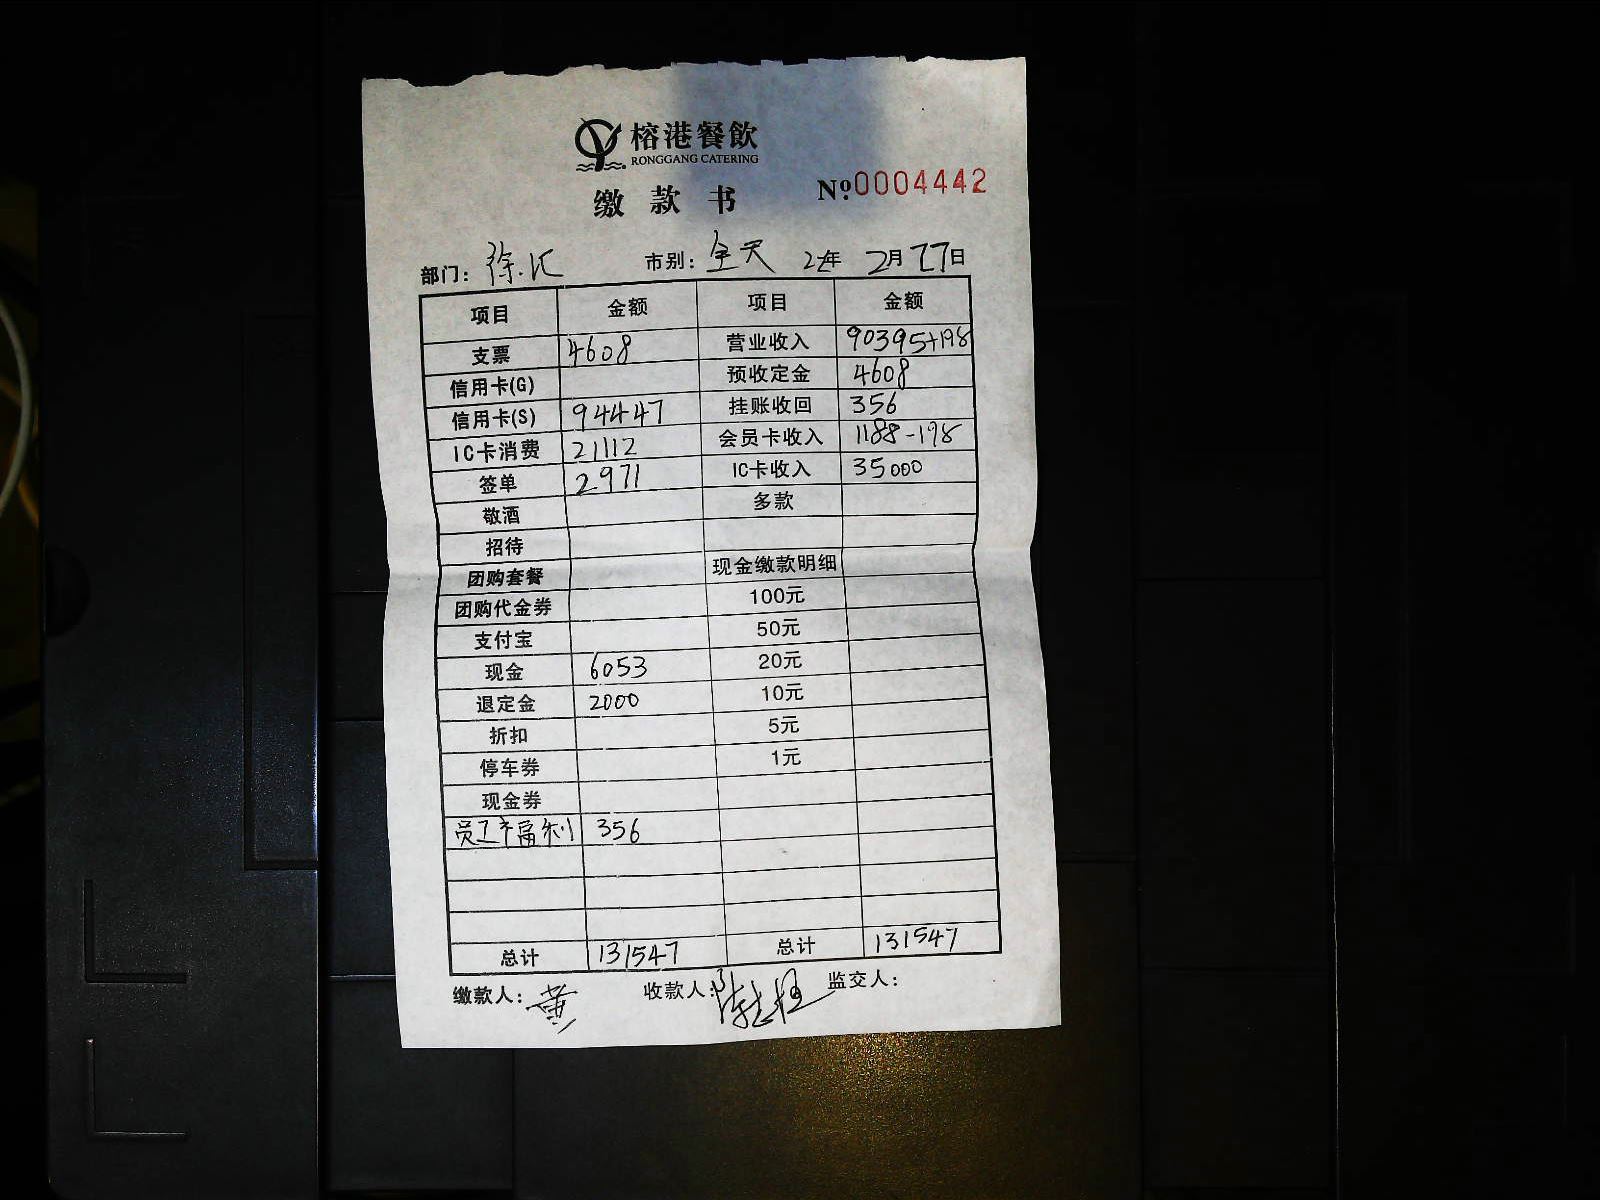 榕港餐飲
RONGGANG CATERING
缴款书 №0004442
部门：徐汇 市别：全天 年 2月27日
项目 金额 项目 金额
支票 4608 营业收入 90395+198
信用卡(G) 预收定金 4608
信用卡(S) 94447 挂账收回 356
IC卡消费 21112 会员卡收入 1188-198
签单 2971 IC卡收入 35000
敬酒 多款
招待
团购套餐 现金缴款明细
团购代金券 100元
支付宝 50元
现金 6053 20元
退定金 2000 10元
折扣 5元
停车券 1元
现金券
员工福利 356
总计 131547 总计 131547
缴款人：黄 收款人： 监交人：